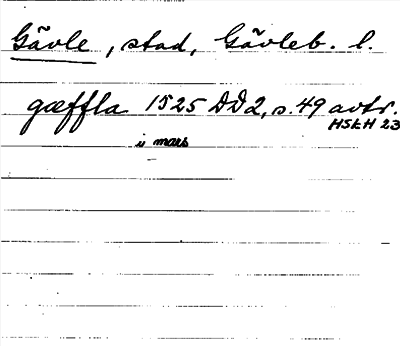 Gävle, stad, Gävleb. l.
gæffla 1525 DD2, s. 49 avtr.
HSkH 23
11 mars